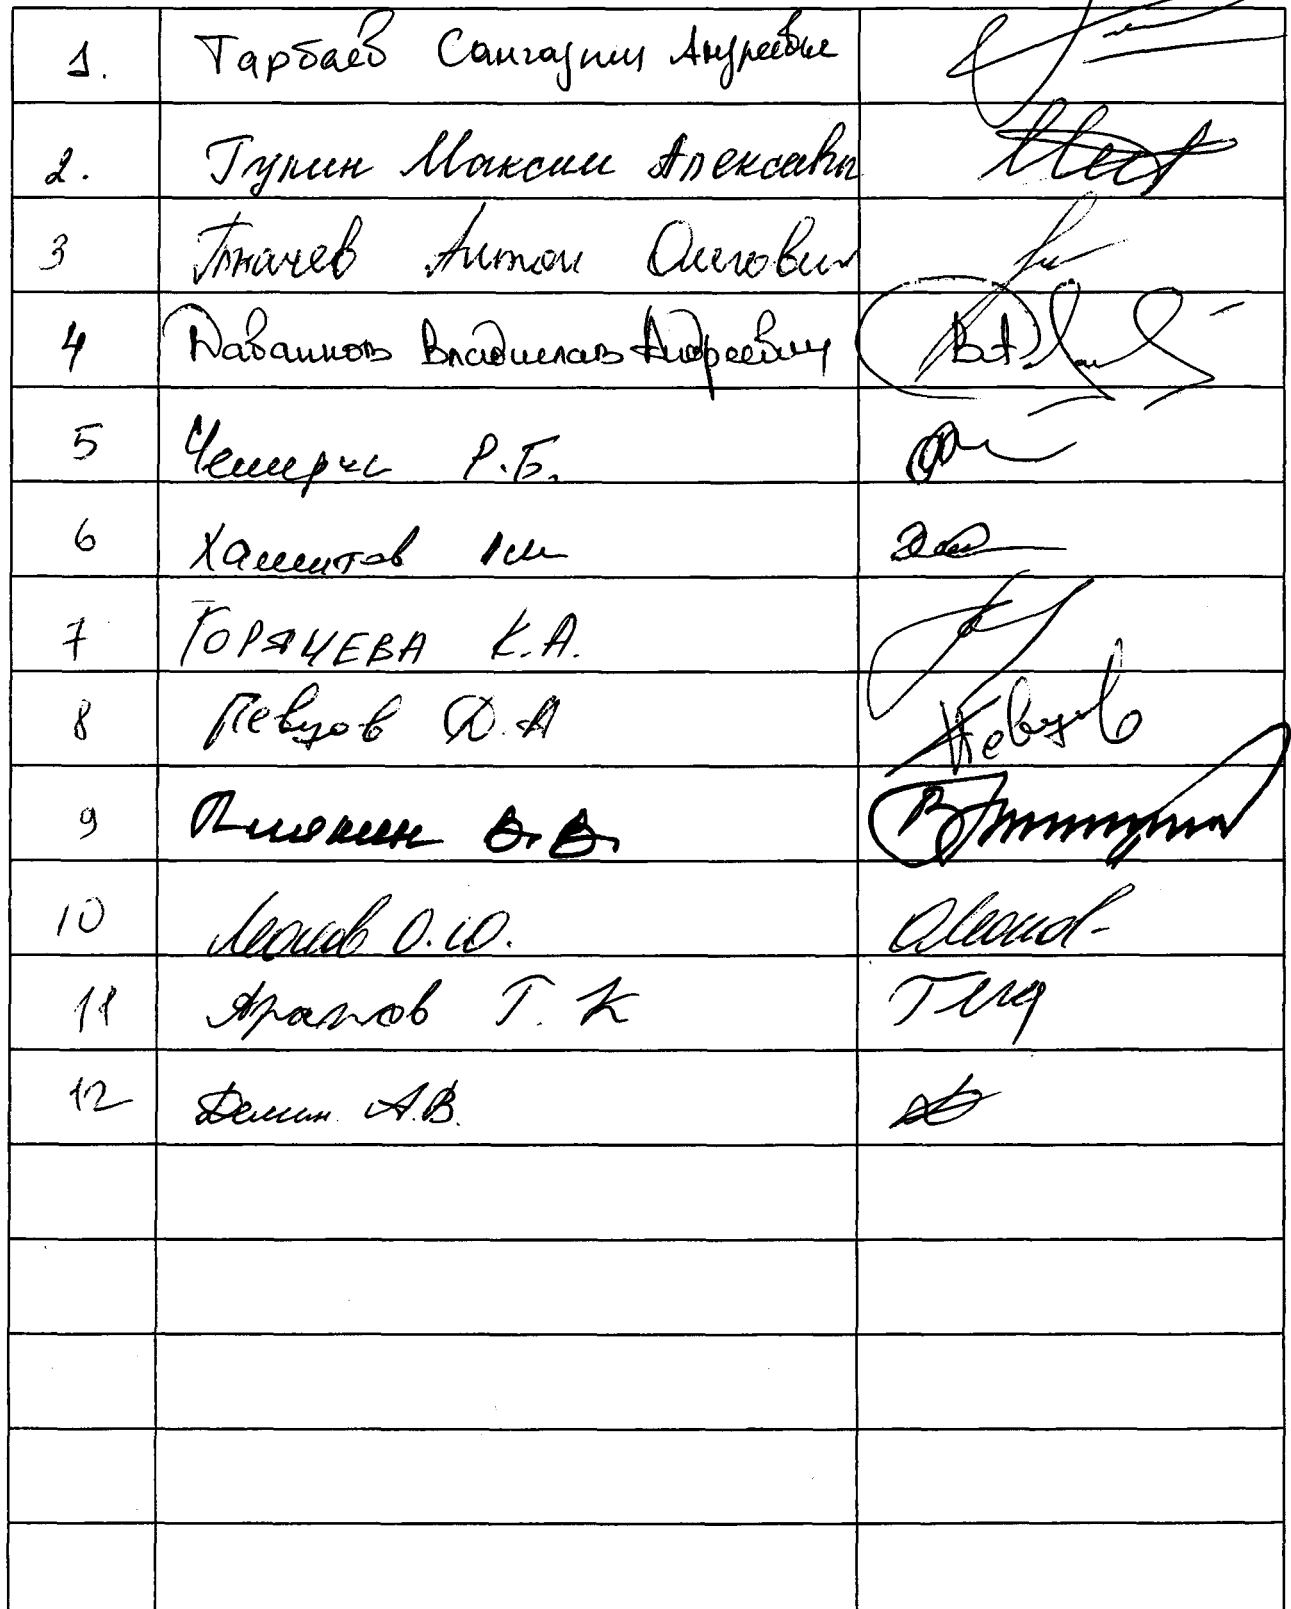 1. Тарбаев Сангаджи Андреевич
2. Гулин Максим Алексеевич
3 Ткачев Антон Олегович
4 Даванков Владислав Андреевич В.А.
5 Чемерис Р.Б.
6 Хамитов
7 ГОРЯЧЕВА К.А.
8 Певцов Д.А Певцов
9 Плякин В.В.
10 Леонов О.Ю. ОЛеонов
11 Арапов Г. К
12 Демин А.В.